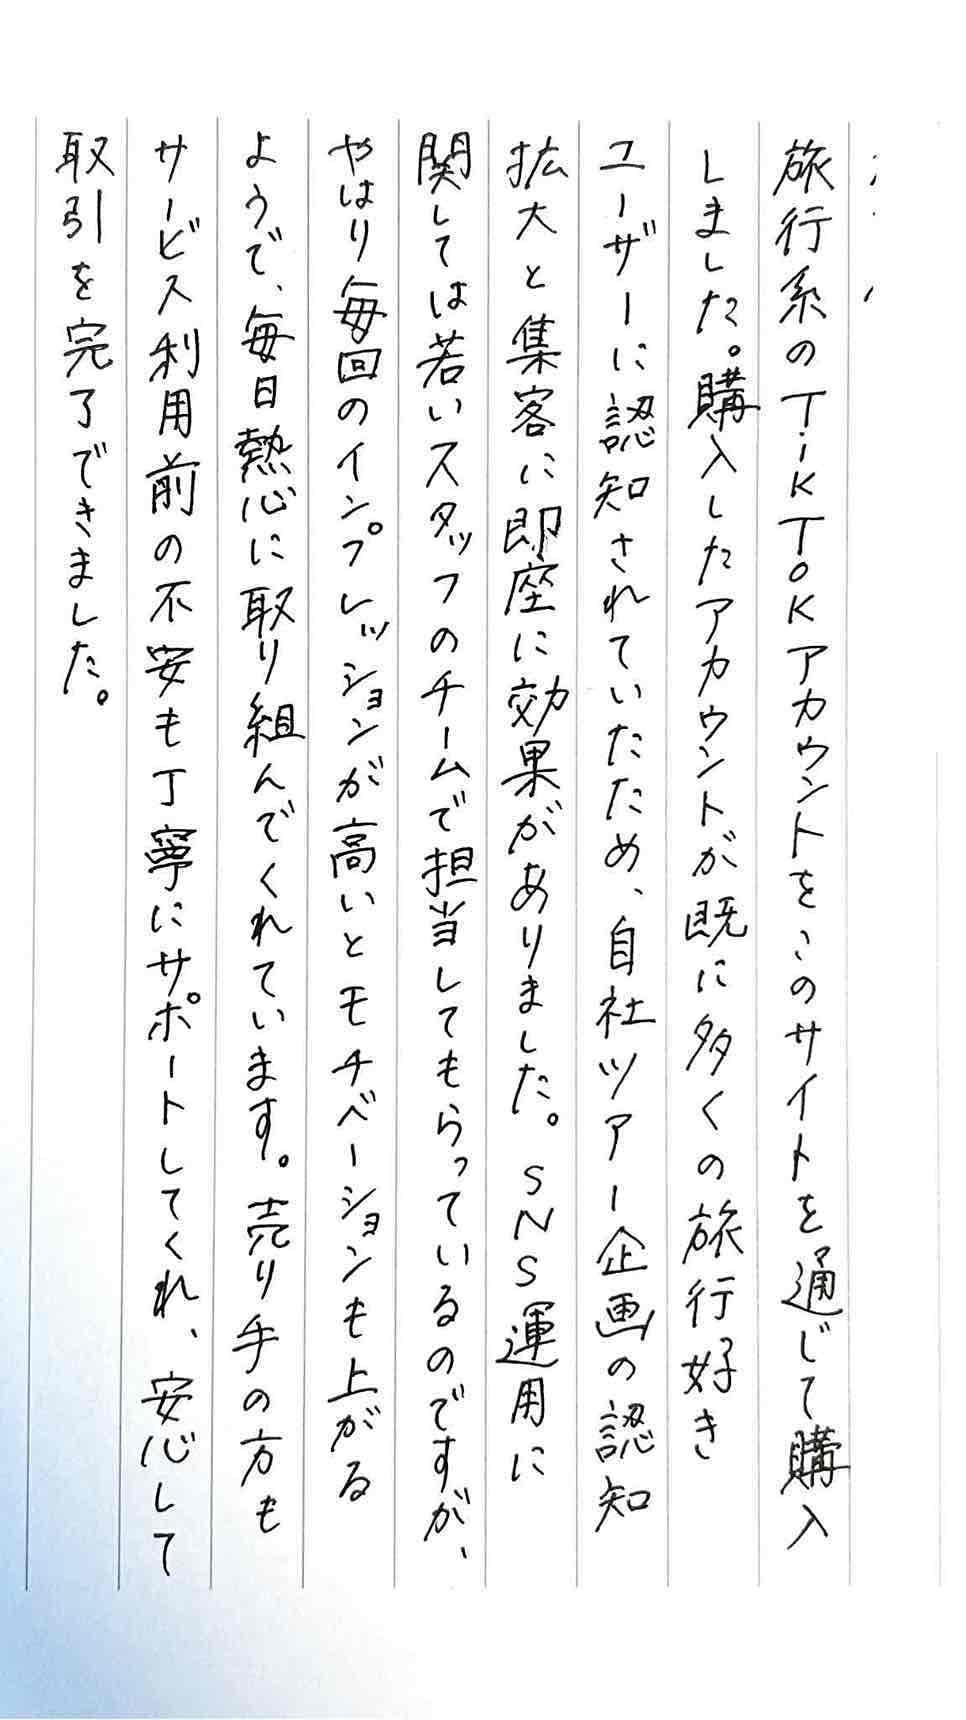 旅行系のTikTokアカウントをこのサイトを通じて購入
しました。購入したアカウントが既に多くの旅行好き
ユーザーに認知されていたため、自社ツアー企画の認知
拡大と集客に即座に効果がありました。SNS運用に
関しては若いスタッフのチームで担当してもらっているのですが、
やはり毎回のインプレッションが高いとモチベーションも上がる
ようで、毎日熱心に取り組んでくれています。売り手の方も
サービス利用前の不安も丁寧にサポートしてくれ、安心して
取引を完了できました。